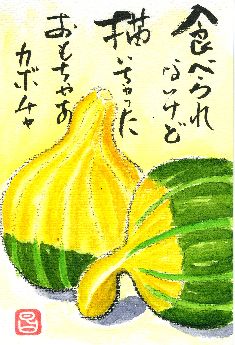 食べられ
ないけど
描いちゃった
おもちゃの
カボチャ